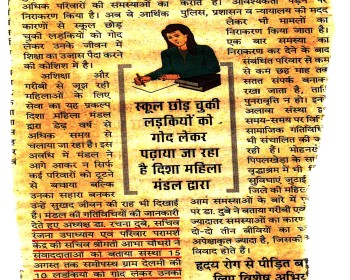 अधिक परिवारों की समस्याओं का
निराकरण किया है। अब ये आर्थिक
कारणों से स्कूल छोड़
चुकी लड़कियों को गोद
लेकर उनके जीवन में
शिक्षा का उजास पैदा करने
की कोशिश में है।
अशिक्षा और
गरीबी से जूझ रही
महिलाओं के लिए
सेवा का यह प्रकल्प
दिशा महिला मंडल
द्वारा डेढ़ वर्ष से
अधिक समय से
चलाया जा रहा है। इस
अवधि में मंडल ने
आगे आकर न सिर्फ
कई परिवारों को टूटने
से बचाया बल्कि
उनका सहारा बनकर
उन्हें सुखद जीवन की राह भी दिखाई
है। मंडल की गतिविधियों की जानकारी
देते हुए अध्यक्ष डा. रचना दुबे, सचिव
रंजना उपाध्याय एवं परिवार परामर्श
केंद्र की सचिव श्रीमती आभा चौधरी ने
संवाददाताओं को बताया संस्था 15
अगस्त तक समीपस्थ ग्राम देलमी की
10 लड़कियों को गोद लेकर उनकी
स्कूल छोड़ चुकी
लड़कियों को
गोद लेकर
पढ़ाया जा रहा
है दिशा महिला
मंडल द्वारा
पुलिस, प्रशासन व न्यायालय की मदद
लेकर भी मामलों का
निराकरण किया जाता है।
एक बार समस्या का
निराकरण कर देने के बाद
संबंधित परिवार से कम
से कम छह माह तक
सतत संपर्क बनाए
रखा जाता है, ताकि
पुनरावृत्ति न हो। इसके
अलावा संस्था द्वारा
समय-समय पर विभिन्न
सामाजिक गतिविधियां
भी संचालित की जा
रही हैं।
आम समस्याओं के बारे में पूछे
पर डा. दुबे ने बताया गरीबी एवं
ज्यादातर समस्याओं का कारण
दो-दो तीन बीवियों का
अपेक्षाकृत ज्यादा है, जिसकी
विवाद होते हैं।
हृदय रोग से पीड़ित ब
लिए विशेष अभि